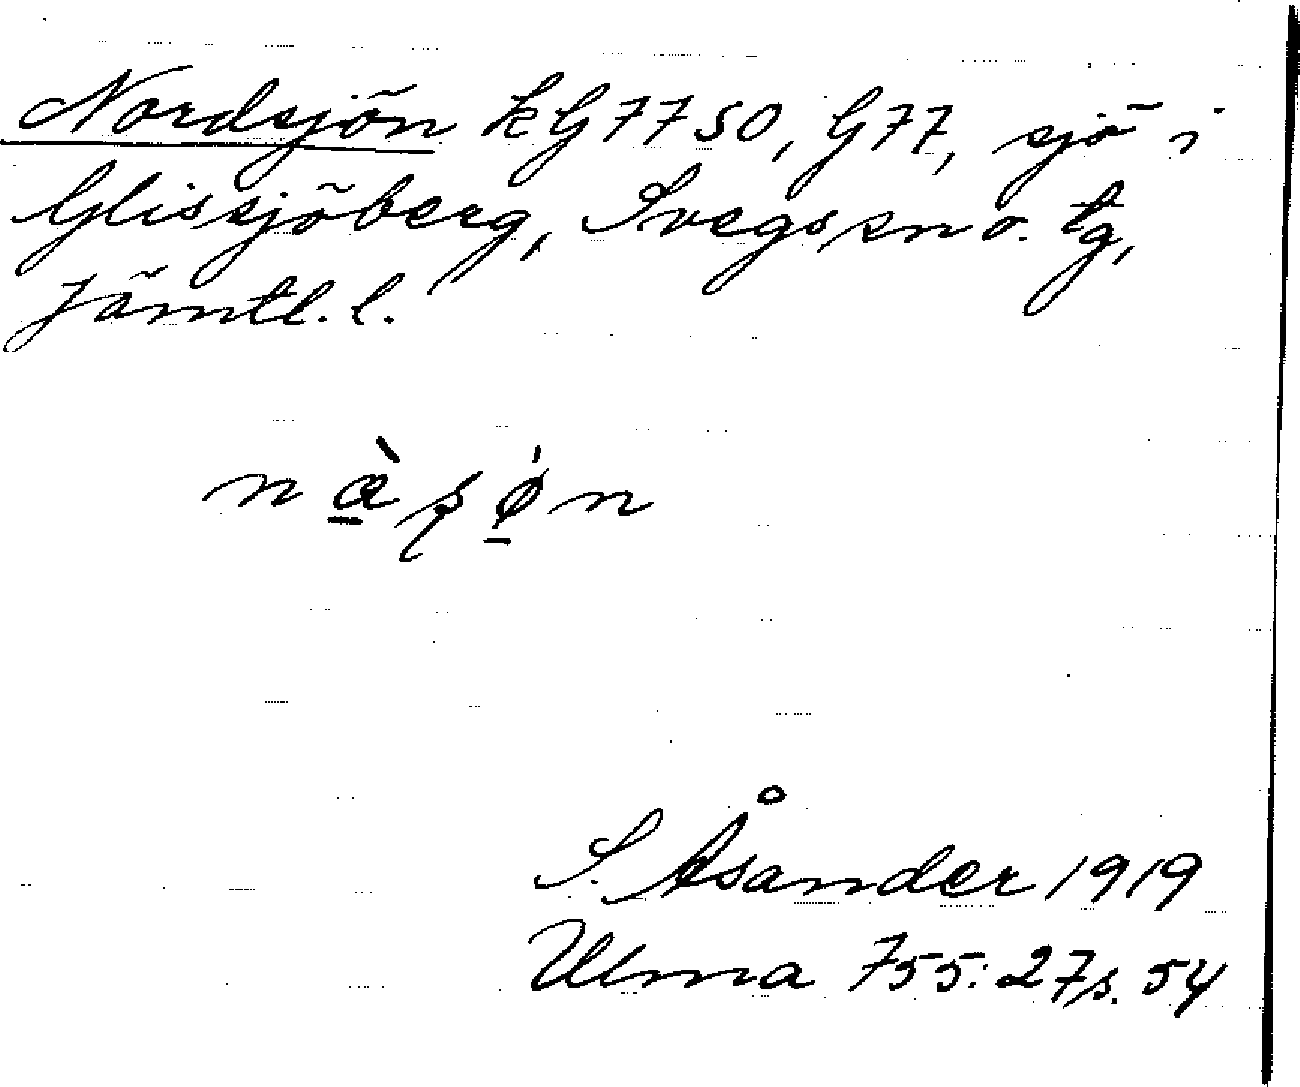 Nordsjön kG7750, G77, sjö i
Glissjöberg, Svegs sn o. tg,
Jämtl. l.
næ̠̀ʂǿ̠n
S. Åsander 1919
Ulma 755:27 s. 54